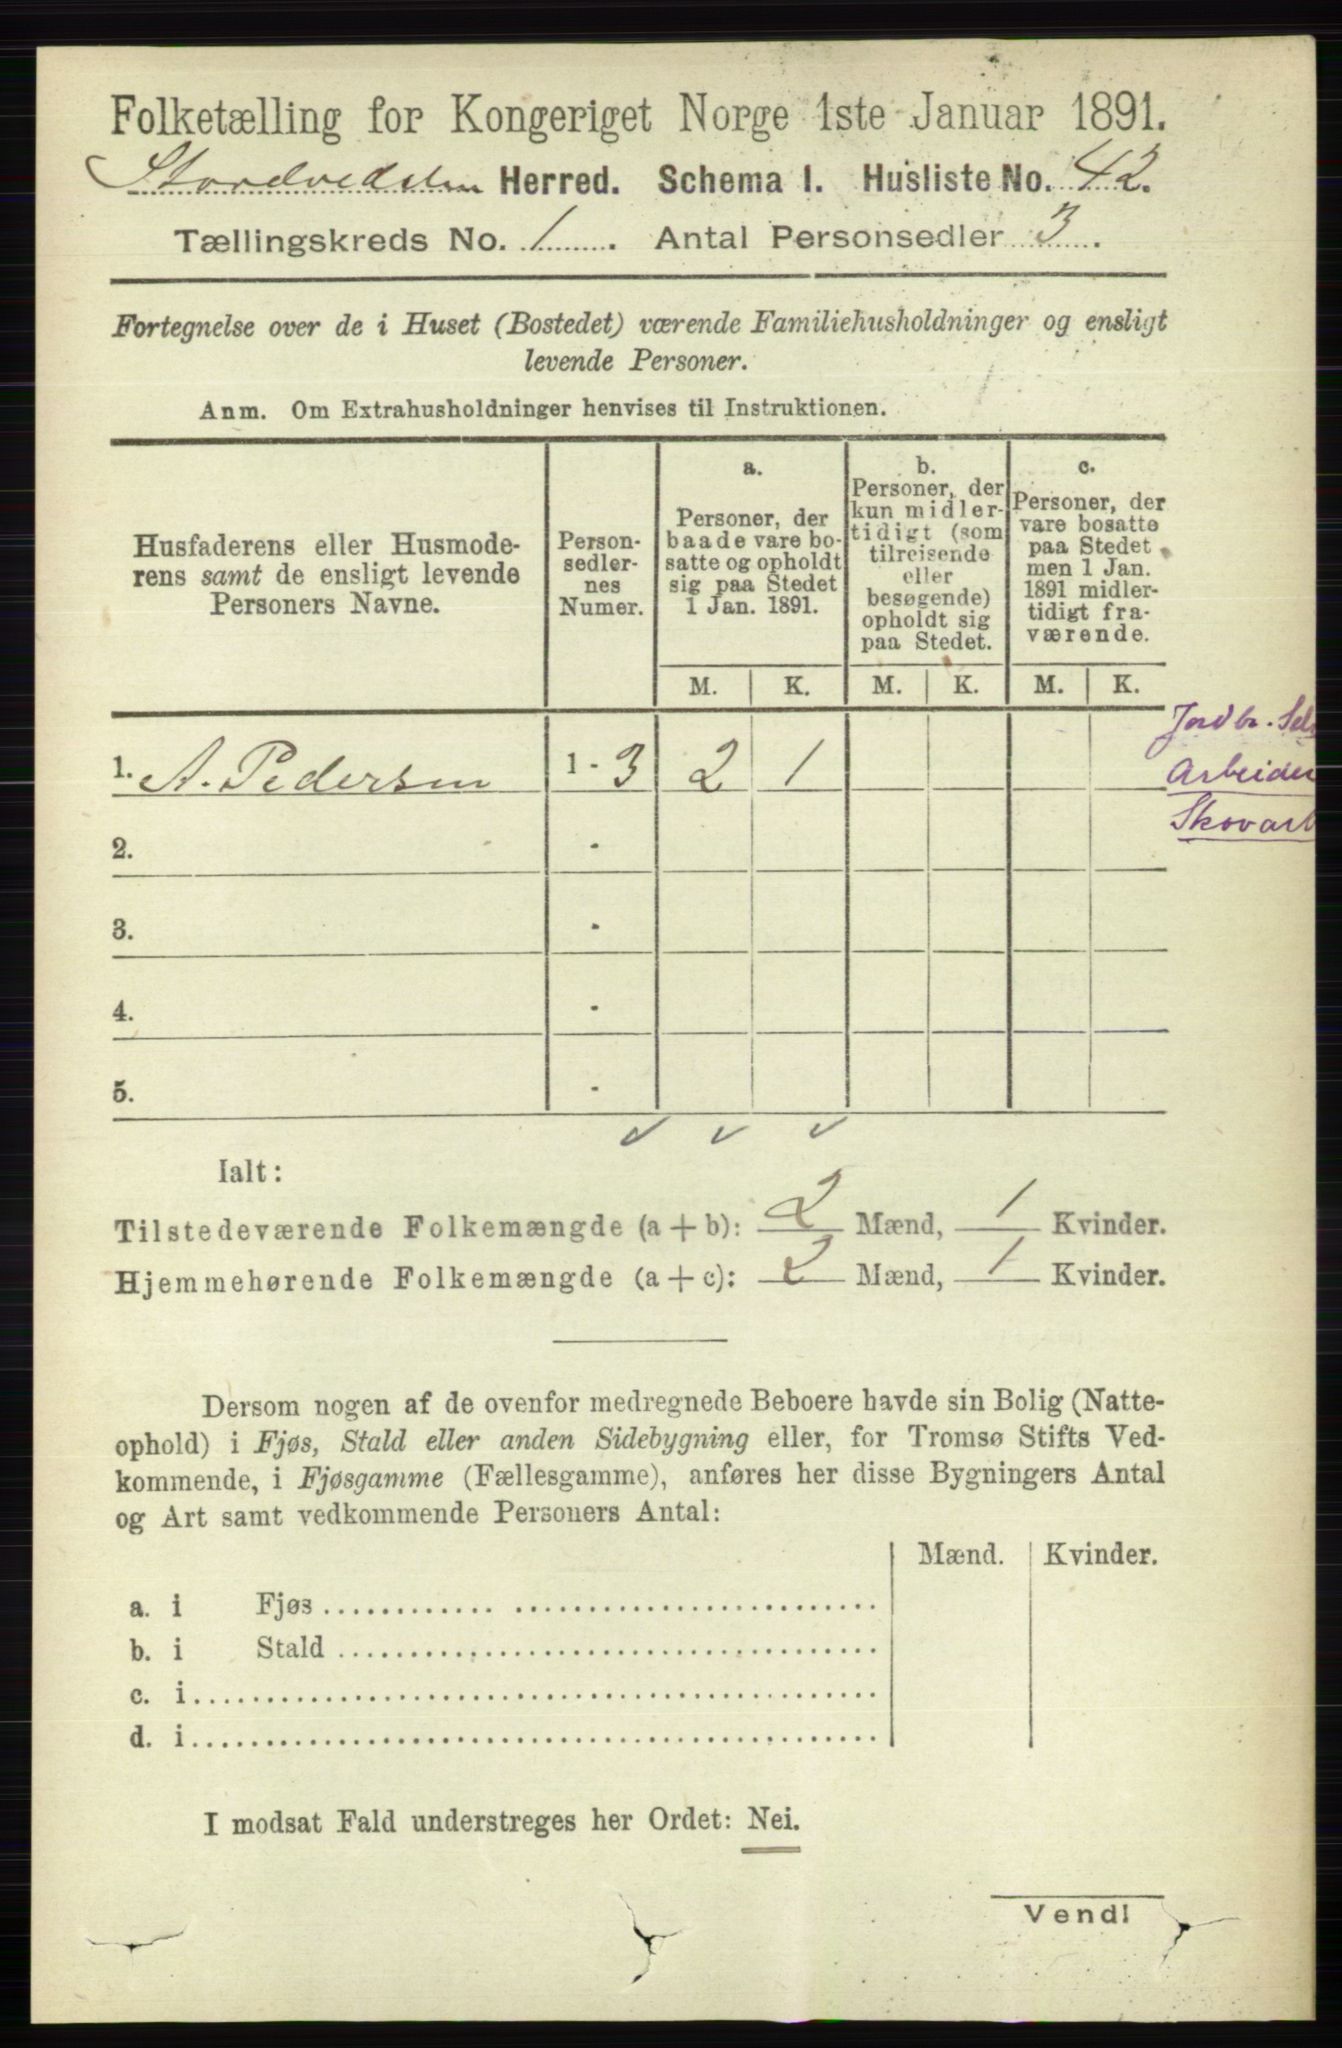 Folketælling for Kongeriget Norge 1ste Januar 1891.
Herred. Schema I. Husliste No. 42.
Tællingskreds No. 1. Antal Personsedler 3.
Fortegnelse over de i Huset (Bostedet) værende Familiehusholdninger og ensligt
levende Personer.
Anm. Om Extrahusholdninger henvises til Instruktionen.
Husfaderens eller Husmode-
rens samt de ensligt levende
Personers Navne.
Person-
sedler-
nes
Numer.
a.
Personer, der
baade vare bo-
satte og opholdt
sig paa Stedet
1 Jan. 1891.
b.
Personer, der
kun midler-
tidigt (som
tilreisende
eller
besøgende)
opholdt sig
paa Stedet.
c.
Personer, der
vare bosatte
paa Stedet
men 1 Jan.
1891 midler-
tidigt fra-
værende.
M. K. M. K. M. K.
Jordbr. Sel
1. A. Pedersen 1 - 3 2 1
Arbeider
Skovarb
2. -
3. -
4. -
5. -
Ialt:
Tilstedeværende Folkemængde (a + b): 2 Mænd, 1 Kvinder.
Hjemmehørende Folkemængde (a + c): 2 Mænd, 1 Kvinder.
Dersom nogen af de ovenfor medregnede Beboere havde sin Bolig (Natte-
ophold) i Fjøs, Stald eller anden Sidebygning eller, for Tromsø Stifts Ved-
kommende, i Fjøsgamme (Fællesgamme), anføres her disse Bygningers Antal
og Art samt vedkommende Personers Antal:
Mænd. Kvinder.
a. i Fjøs
b. i Stald
c. i
d. i
I modsat Fald understreges her Ordet: Nei.
Vend!